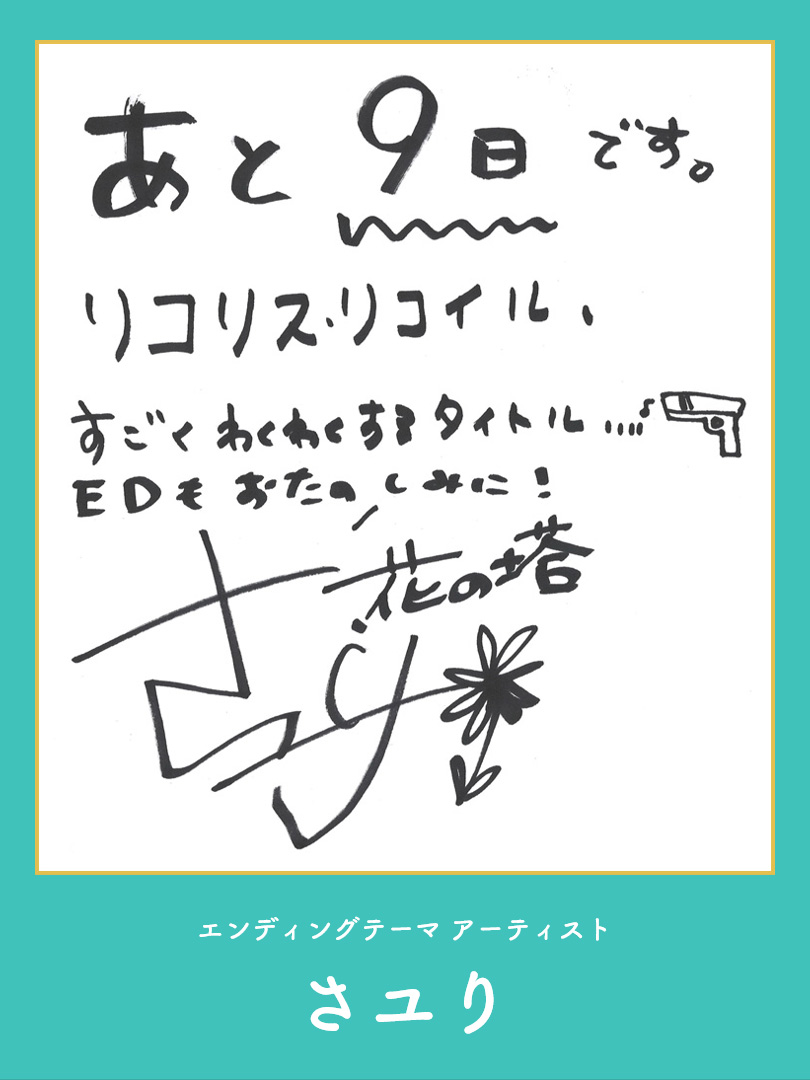 あと9日です。
リコリス・リコイル、
すごくわくわくするタイトル....
EDもおたのしみに!
花の塔
さユり
エンディングテーマ アーティスト
さユり